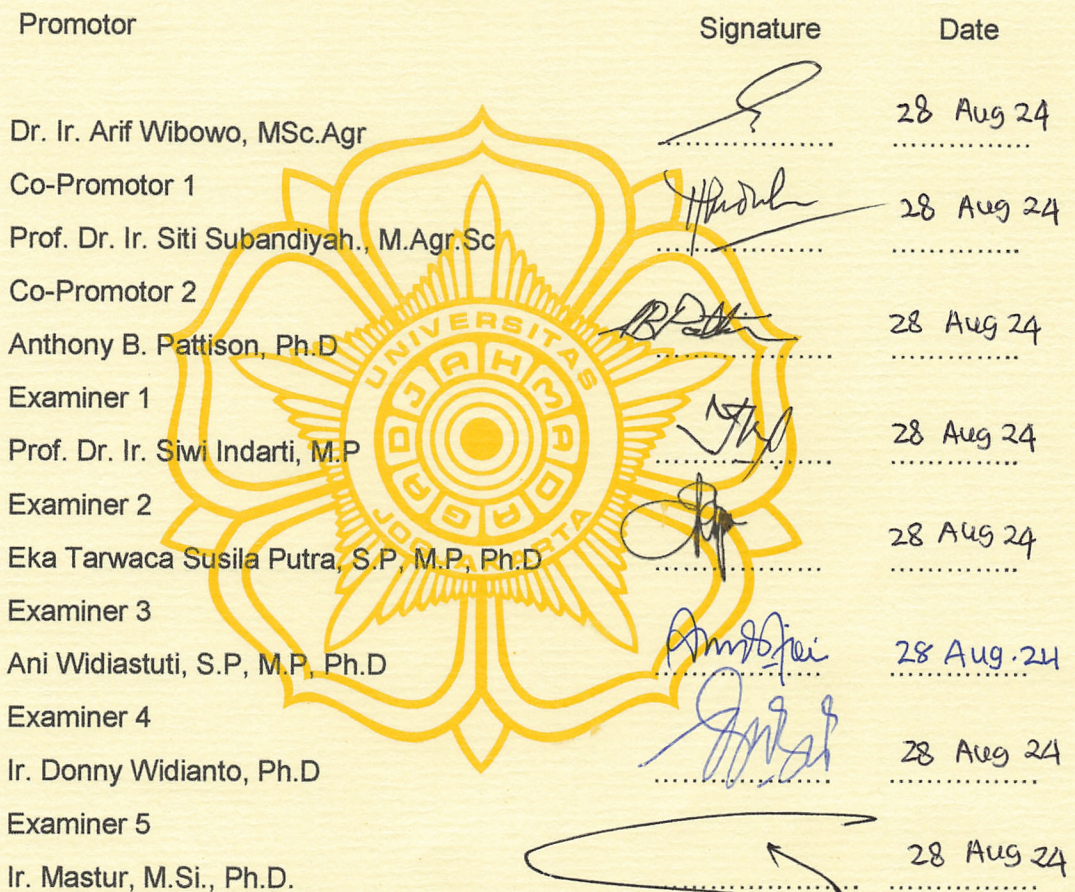 Promotor Signature Date
Dr. Ir. Arif Wibowo, MSc.Agr .................. 28 Aug 24
Co-Promotor 1
Prof. Dr. Ir. Siti Subandiyah., M.Agr.Sc .................. 28 Aug 24
Co-Promotor 2
Anthony B. Pattison, Ph.D .................. 28 Aug 24
Examiner 1
Prof. Dr. Ir. Siwi Indarti, M.P .................. 28 Aug 24
Examiner 2
Eka Tarwaca Susila Putra, S.P, M.P, Ph.D .................. 28 Aug 24
Examiner 3
Ani Widiastuti, S.P, M.P, Ph.D .................. 28 Aug. 24
Examiner 4
Ir. Donny Widianto, Ph.D .................. 28 Aug 24
Examiner 5
Ir. Mastur, M.Si., Ph.D. .................. 28 Aug 24
UNIVERSITAS
GADJAH MADA
JOGJAKARTA